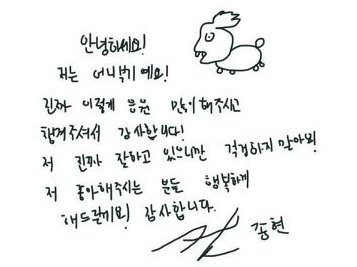 안녕하세요!
저는 어니부기 예요!
진짜 이렇게 응원 많이해주시고
챙겨주셔서 감사합니다!
저 진짜 잘하고 있으니깐 걱정하지 말아요!
저 좋아해주시는 분들 행복하게
해드릴게요! 감사합니다.
종현